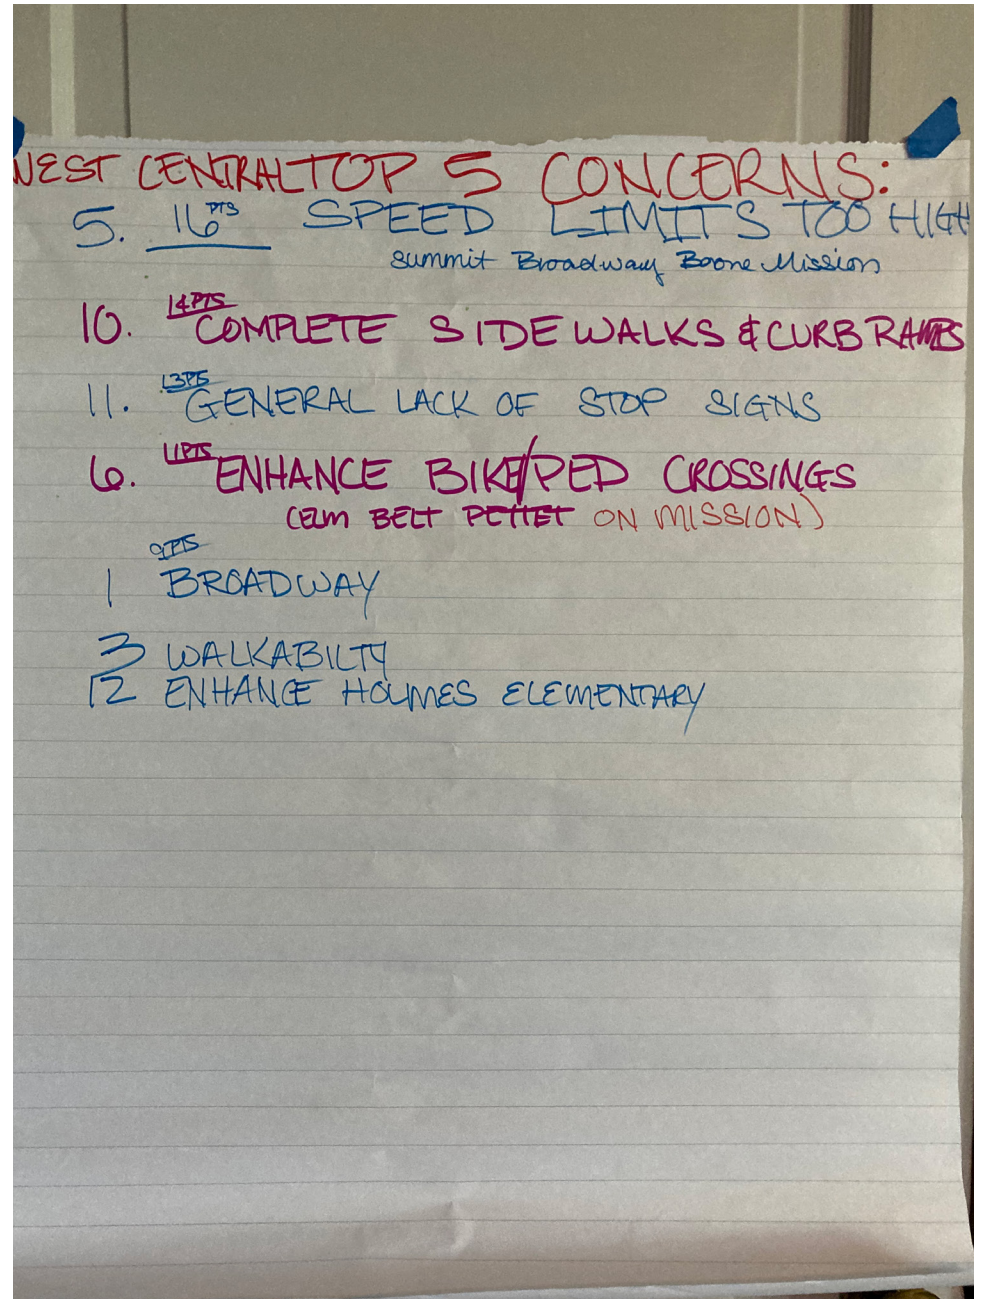 WEST CENTRAL TOP 5 CONCERNS:
5. 16 PTS SPEED LIMITS TOO HIGH
Summit Broadway Boone Mission
10. 14 PTS COMPLETE SIDEWALKS & CURB RAMPS
11. 13 PTS GENERAL LACK OF STOP SIGNS
6. 11 PTS ENHANCE BIKE/PED CROSSINGS
(ELM BELT PETTET ON MISSION)
1 9 PTS BROADWAY
3 WALKABILTY
12 ENHANCE HOLMES ELEMENTARY